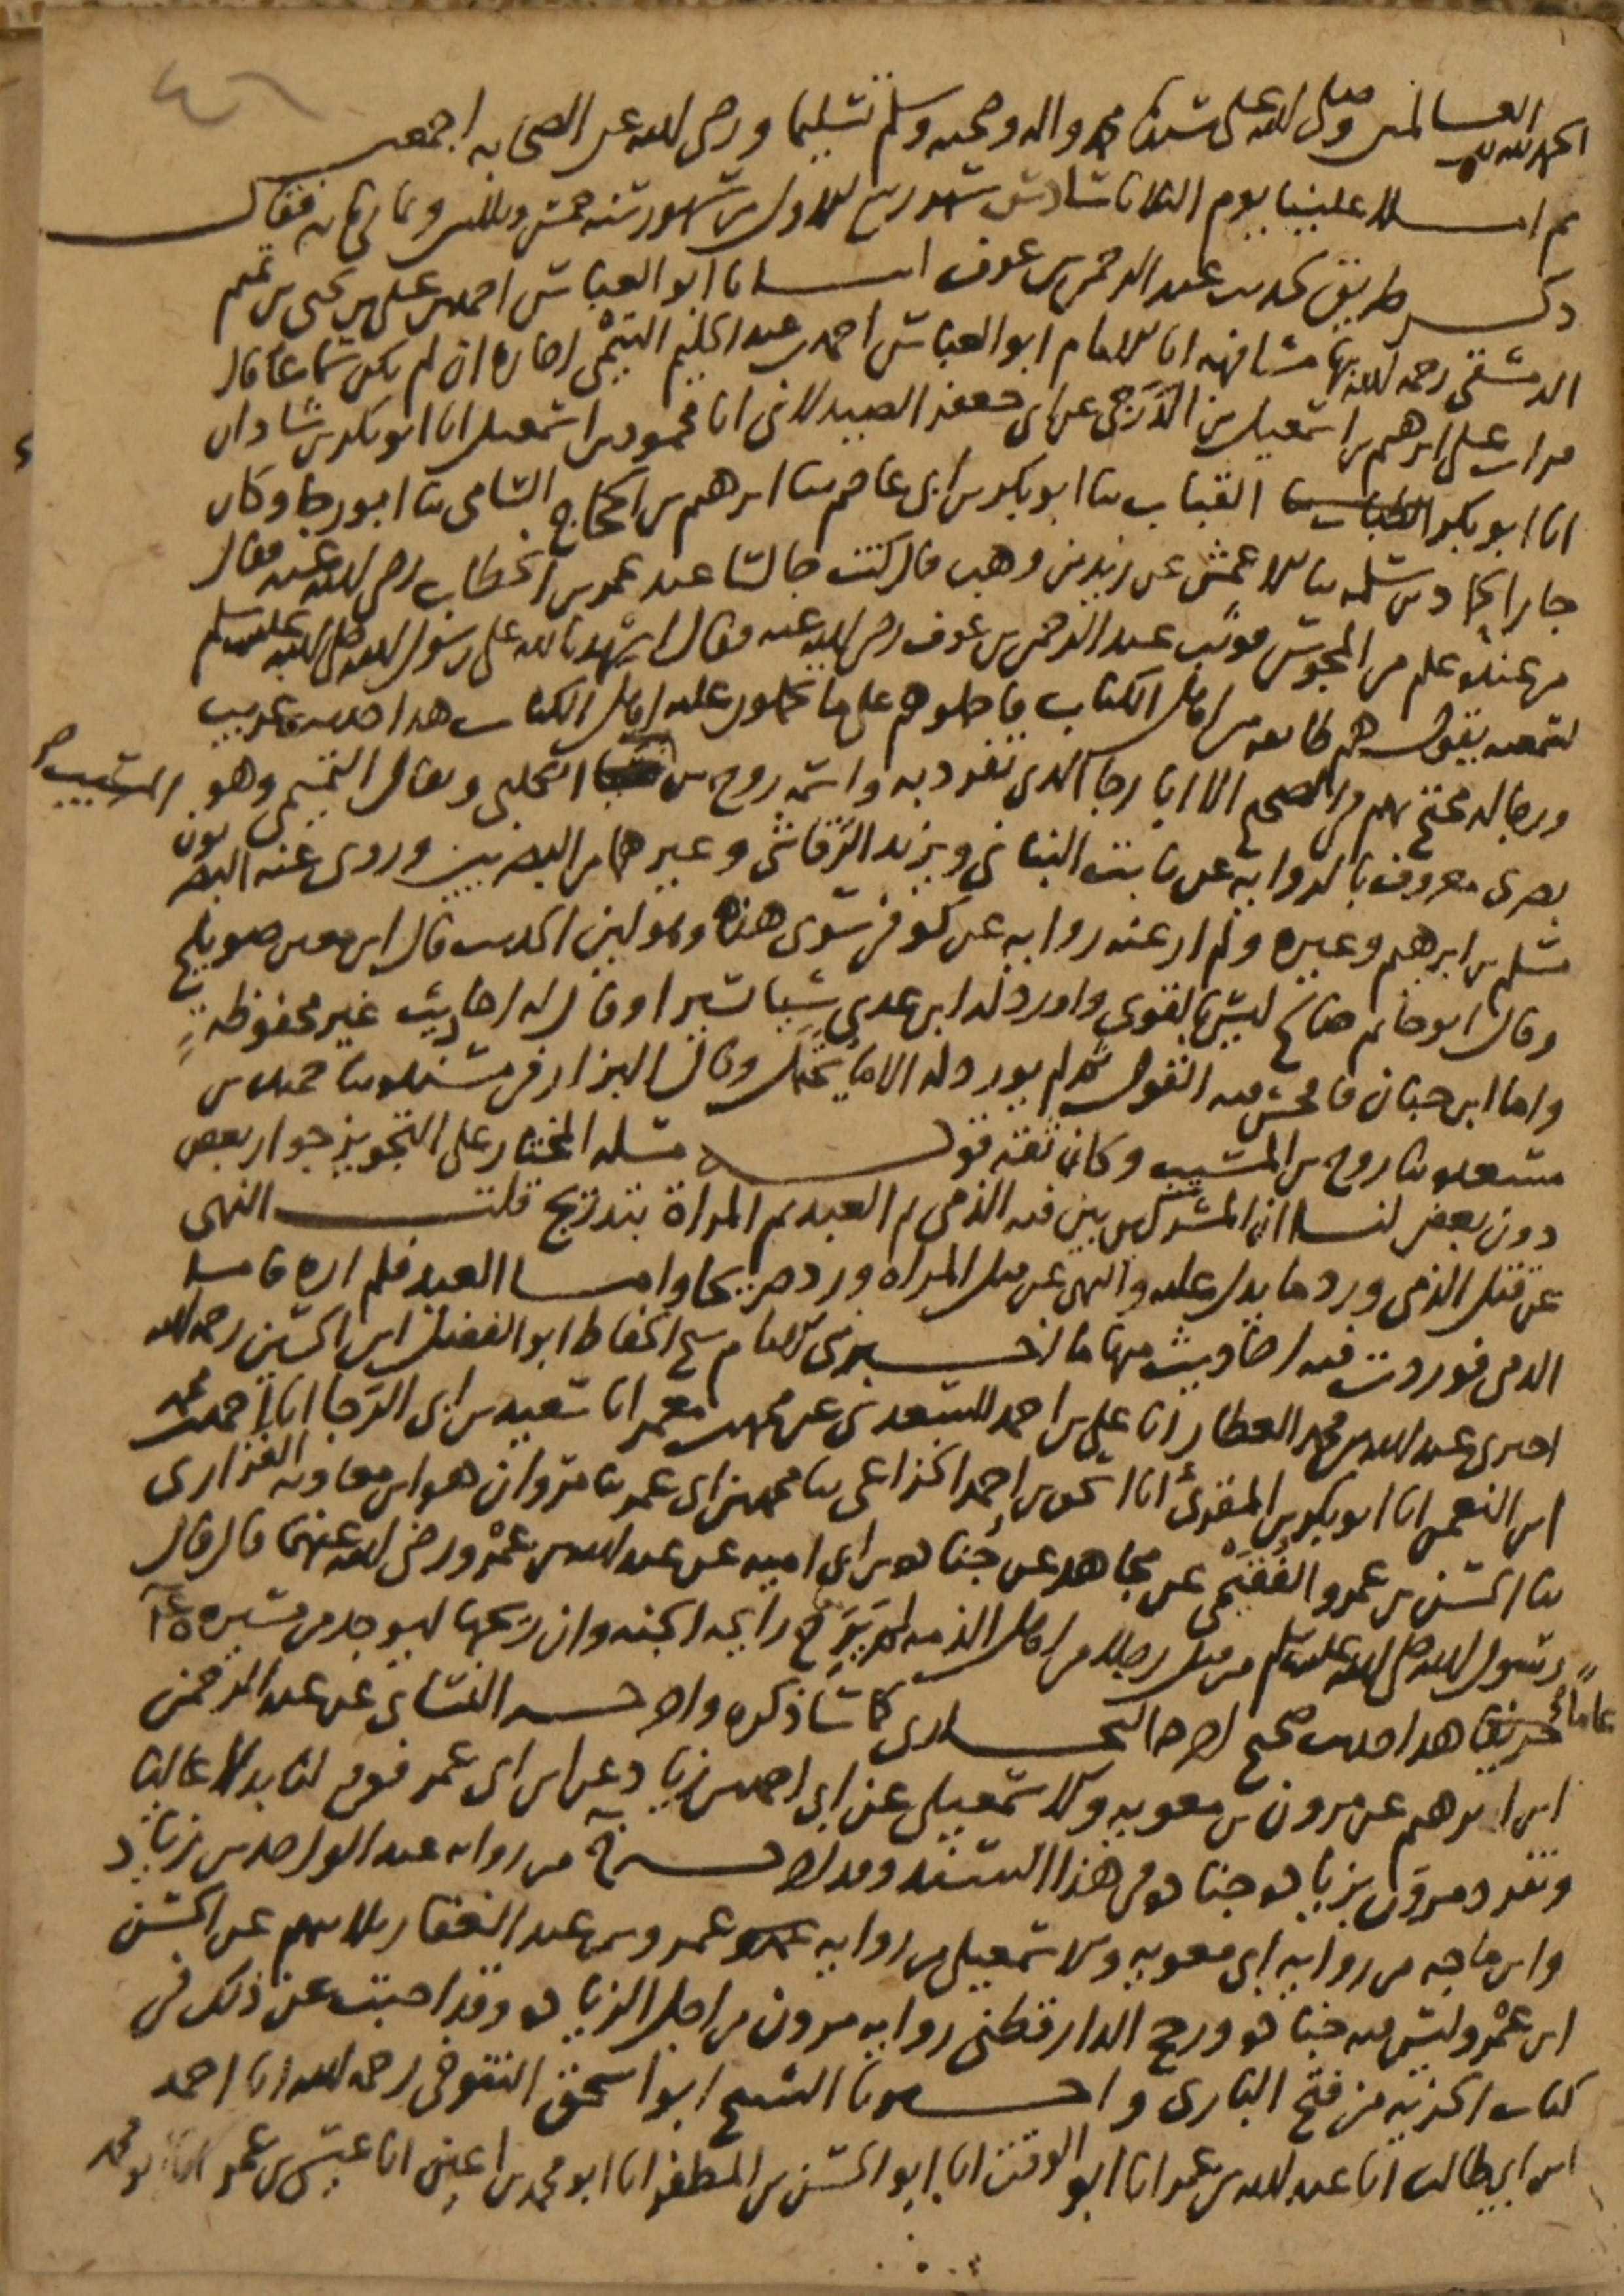 الحمد لله رب العالمين وصلى الله على سيدنا محمد واله وصحبه وسلم تسليما ورضي الله عن الصحابة اجمعين
ثم املا علينا يوم الثلاثا سادس شهر ربيع الاول من شهور سنه خمس وثلاثين وثمان مائة فقال
ذكر طريق حديث عبد الرحمن بن عوف انبانا ابو العباس احمد بن علي بن يحيى بن تميم
الدمشقي رحمه الله بها مشافهة انا الامام ابو العباس احمد بن عبد الحليم التيمي اجازة ان لم يكن سماعا قال
قرات على ابرهيم بن اسمعيل بن الدرجي عن ابي جعفر الصيدلاني انا محمود بن اسمعيل انا ابو بكر بن شاذان
انا ابو بكر القباب ثنا ابو بكر بن ابي عاصم ثنا ابرهيم بن الحجاج السامي ثنا ابو رجا وكان
جارا لحماد بن سلمه ثنا الاعمش عن زيد بن وهب قال كنت جالسا عند عمر بن الخطاب رضي الله عنه فقال
من عنده علم من المجوس فوثب عبد الرحمن بن عوف رضي الله عنه فقال اشهد بالله على رسول الله صلى الله عليه وسلم
لسمعته يقول هم طايفه من اهل الكتاب فاحملوهم على ما تحملون عليه اهل الكتاب هذا حديث غريب
ورجاله محتج بهم في الصحيح الا ابا رجا الذي تفرد به واسمه روح بن المسيب الكلبي ويقال التميمي وهو
بصري معروف بالرواية عن ثابت البناني ويزيد الرقاشي وغيرهما من البصريين وروى عنه البصريون
مسلم بن ابرهيم وغيره ولم ار عنه رواية عن كوفي سوى هذا وهو لين الحديث قال ابن معين صويلح
وقال ابو حاتم صالح ليس بالقوي واورد له ابن عدي شيا يسيرا وقال له احاديث غير محفوظه
واما ابن حبان فافحش فيه القول ثم لم يورد له الا ما يحتمل وقال البزار في مسنده ثنا حميد بن
مسعده ثنا روح بن المسيب وكان ثقه قوله مسله المختار على التجويز جواز بعض
دون بعض لنا ان المشركين بين فيه الذمي ثم العبد ثم المراة بتدريج قلت النهي
عن قتل الذمي ورد ما يدل عليه والنهي عن قتل المراه ورد صريحا واما العبد فلم اره فاما
الذمي فوردت فيه احاديث منها ما اخبرني الامام شيخ الحفاظ ابو الفضل ابن الحسين رحمه الله
اخبرني عبد الله بن محمد العطار انا علي بن احمد السعدي عن محمد بن معمر انا سعيد بن ابي الرجا انا احمد بن محمد
ابن النعمن انا ابو بكر بن المقرئ انا اسحق بن احمد الخزاعي ثنا محمد بن ابي عمر ثنا مروان هو ابن معاويه الفزاري
ثنا الحسن بن عمرو الفقيمي عن مجاهد عن جناده بن ابي اميه عن عبد الله بن عمرو رضي الله عنهما قال قال
رسول الله صلى الله عليه وسلم من قتل رجلا من اهل الذمه لم يرح رايحه الجنه وان ريحها ليوجد من مسيرة
عاما هذا حديث صحيح اخرجه البخاري كما سا ذكره واخرجه النسائي عن عبد الرحمن
ابن ابرهيم عن مرون بن معويه والاسمعيلي عن ابي احمد بن زياد عن ابن ابي عمر فوقع لنا بدلا عاليا
وتفرد مرون بزيادة جناده في هذا السند وقد اخرجه من رواية عبد الواحد بن زياد
وابن ماجه من رواية ابي معويه والاسمعيلي من رواية عمرو بن عبد الغفار ثلاثتهم عن الحسن
ابن عمرو وليس فيه جناده ورجح الدارقطني رواية مرون من اجل الزيادة وقد اجبت عن ذلك في
كتاب الجزيه من فتح الباري واخبرنا الشيخ ابو اسحق التنوخي رحمه الله انا احمد
ابن ابي طالب انا عبد الله بن عمر انا ابو الوقت انا ابو الحسن بن المظفر انا ابو محمد بن اعين انا عيسى بن عمر انا ابو محمد